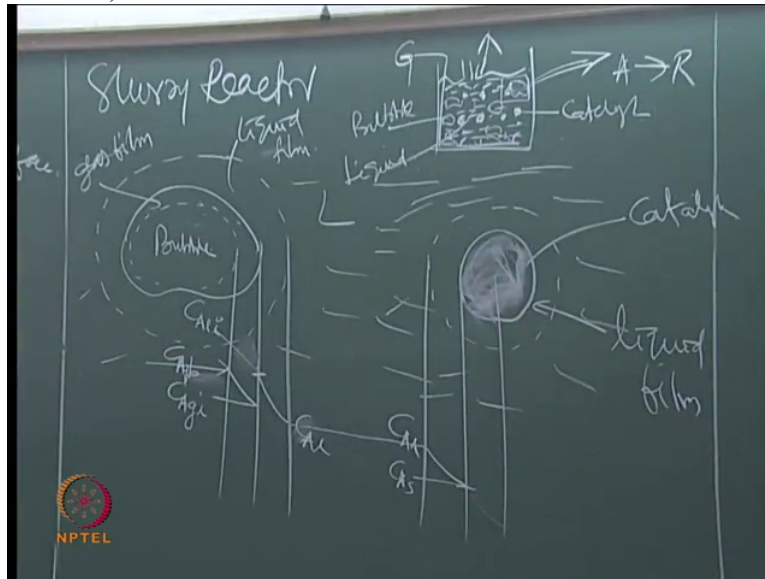 Slurry Reactor
G
A → R
Bubble
Catalyst
Liquid
gas film
liquid film
Bubble
L
Catalyst
liquid film
C_Ali
C_Ab
C_Agi
C_Al
C_As
NPTEL